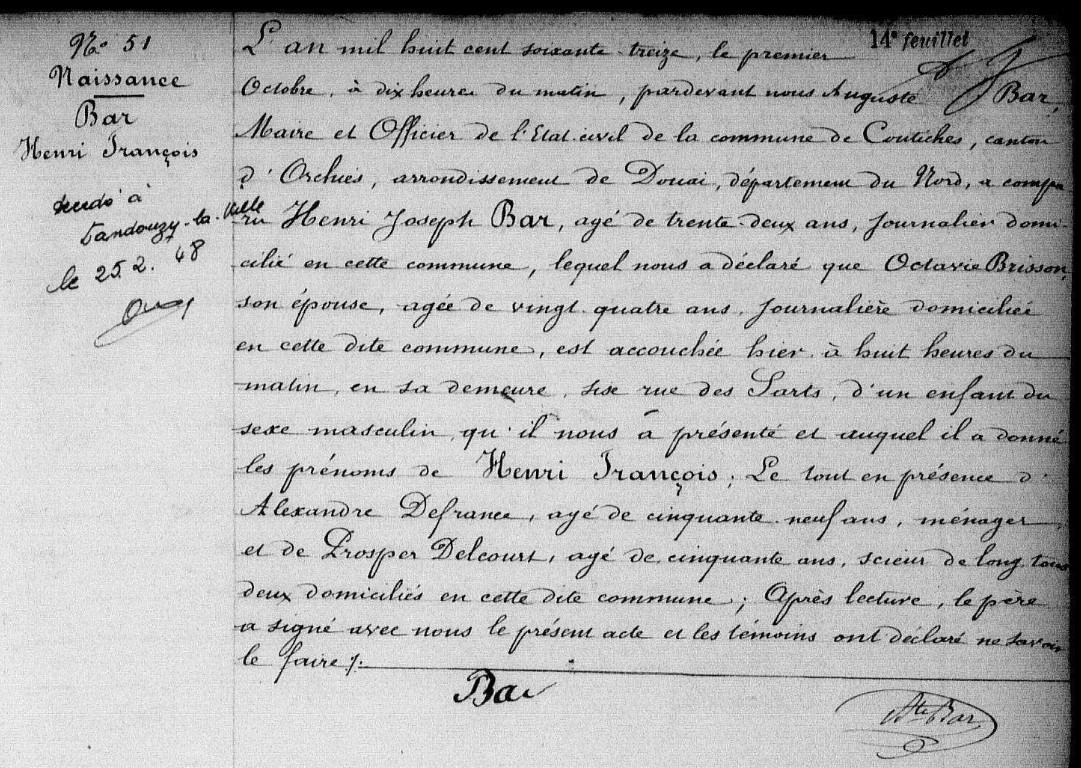 N° 51
Naissance
Bar
Henri François
décédé à
Landouzy-la-Ville
le 25.2.48
14e feuillet
L'an mil huit cent soixante-treize, le premier
Octobre, à dix heures du matin, pardevant nous Auguste Bar,
Maire et Officier de l'Etat-civil de la commune de Coutiches, canton
d'Orchies, arrondissement de Douai, département du Nord, a compa
ru Henri Joseph Bar, agé de trente-deux ans, Journalier domi-
cilié en cette commune, lequel nous a déclaré que Octavie Brisson,
son épouse, agée de vingt-quatre ans, Journalière domiciliée
en cette dite commune, est accouchée hier à huit heures du
matin, en sa demeure, sise rue des Sarts, d'un enfant du
sexe masculin qu'il nous a présenté et auquel il a donné
les prénoms de Henri François; Le tout en présence d'
Alexandre Defrance, agé de cinquante-neuf ans, ménager,
et de Prosper Delcourt, agé de cinquante ans, scieur de long tous
deux domiciliés en cette dite commune; Après lecture, le père
a signé avec nous le présent acte et les témoins ont déclaré ne savoir
le faire ./.
Bar
Ate Bar